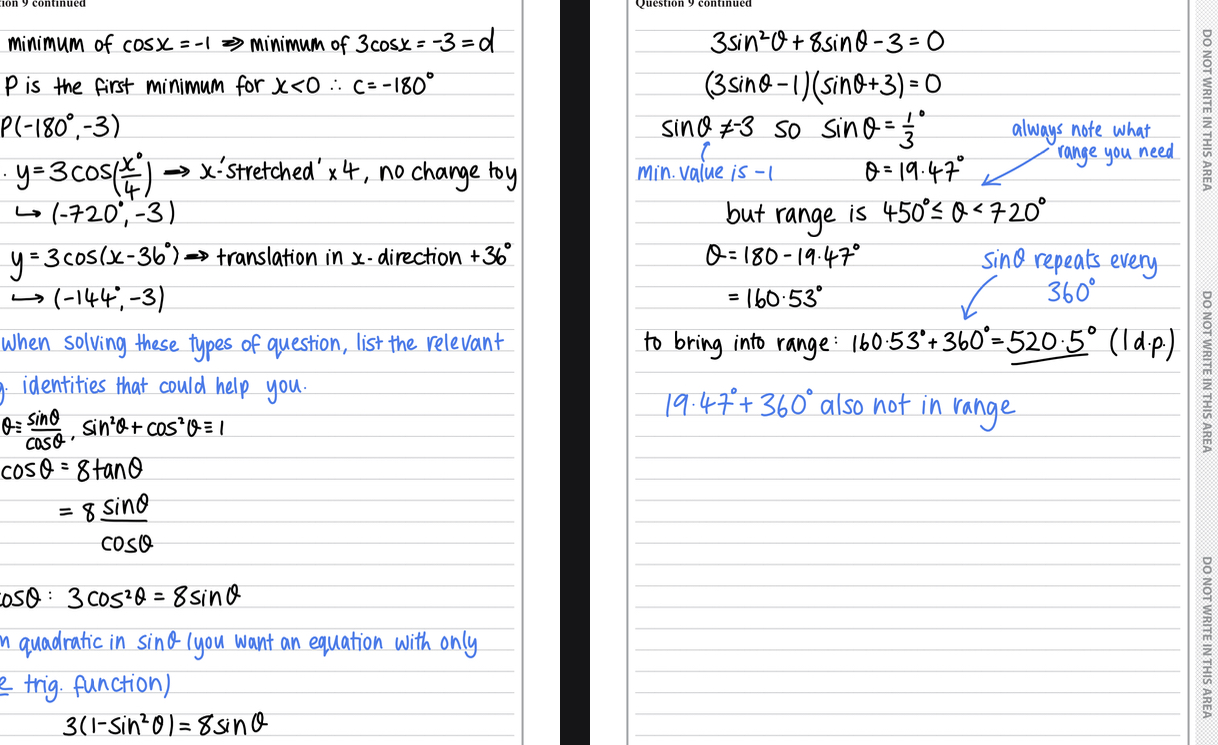 ion 9 continued
minimum of cosx = -1 ⇒ minimum of 3cosx = -3 = d
P is the first minimum for x<0 ∴ c = -180°
P(-180°, -3)
. y = 3cos(x°/4) → x 'stretched' × 4, no change to y
↳ (-720°, -3)
y = 3cos(x-36°) → translation in x-direction +36°
↳ (-144°, -3)
When solving these types of question, list the relevant
g. identities that could help you.
θ ≡ sinθ/cosθ, sin²θ + cos²θ ≡ 1
cosθ = 8tanθ
= 8 sinθ/cosθ
osθ: 3cos²θ = 8sinθ
n quadratic in sinθ (you want an equation with only
e trig. function)
3(1-sin²θ) = 8sinθ
Question 9 continued
3sin²θ + 8sinθ - 3 = 0
(3sinθ - 1)(sinθ + 3) = 0
sinθ ≠ -3 so sinθ = 1/3°
always note what
range you need
min. value is -1
θ = 19.47°
but range is 450° ≤ θ < 720°
θ = 180 - 19.47°
sinθ repeats every
360°
= 160.53°
to bring into range: 160.53° + 360° = 520.5° (1 d.p.)
19.47° + 360° also not in range
DO NOT WRITE IN THIS AREA
DO NOT WRITE IN THIS AREA
DO NOT WRITE IN THIS AREA